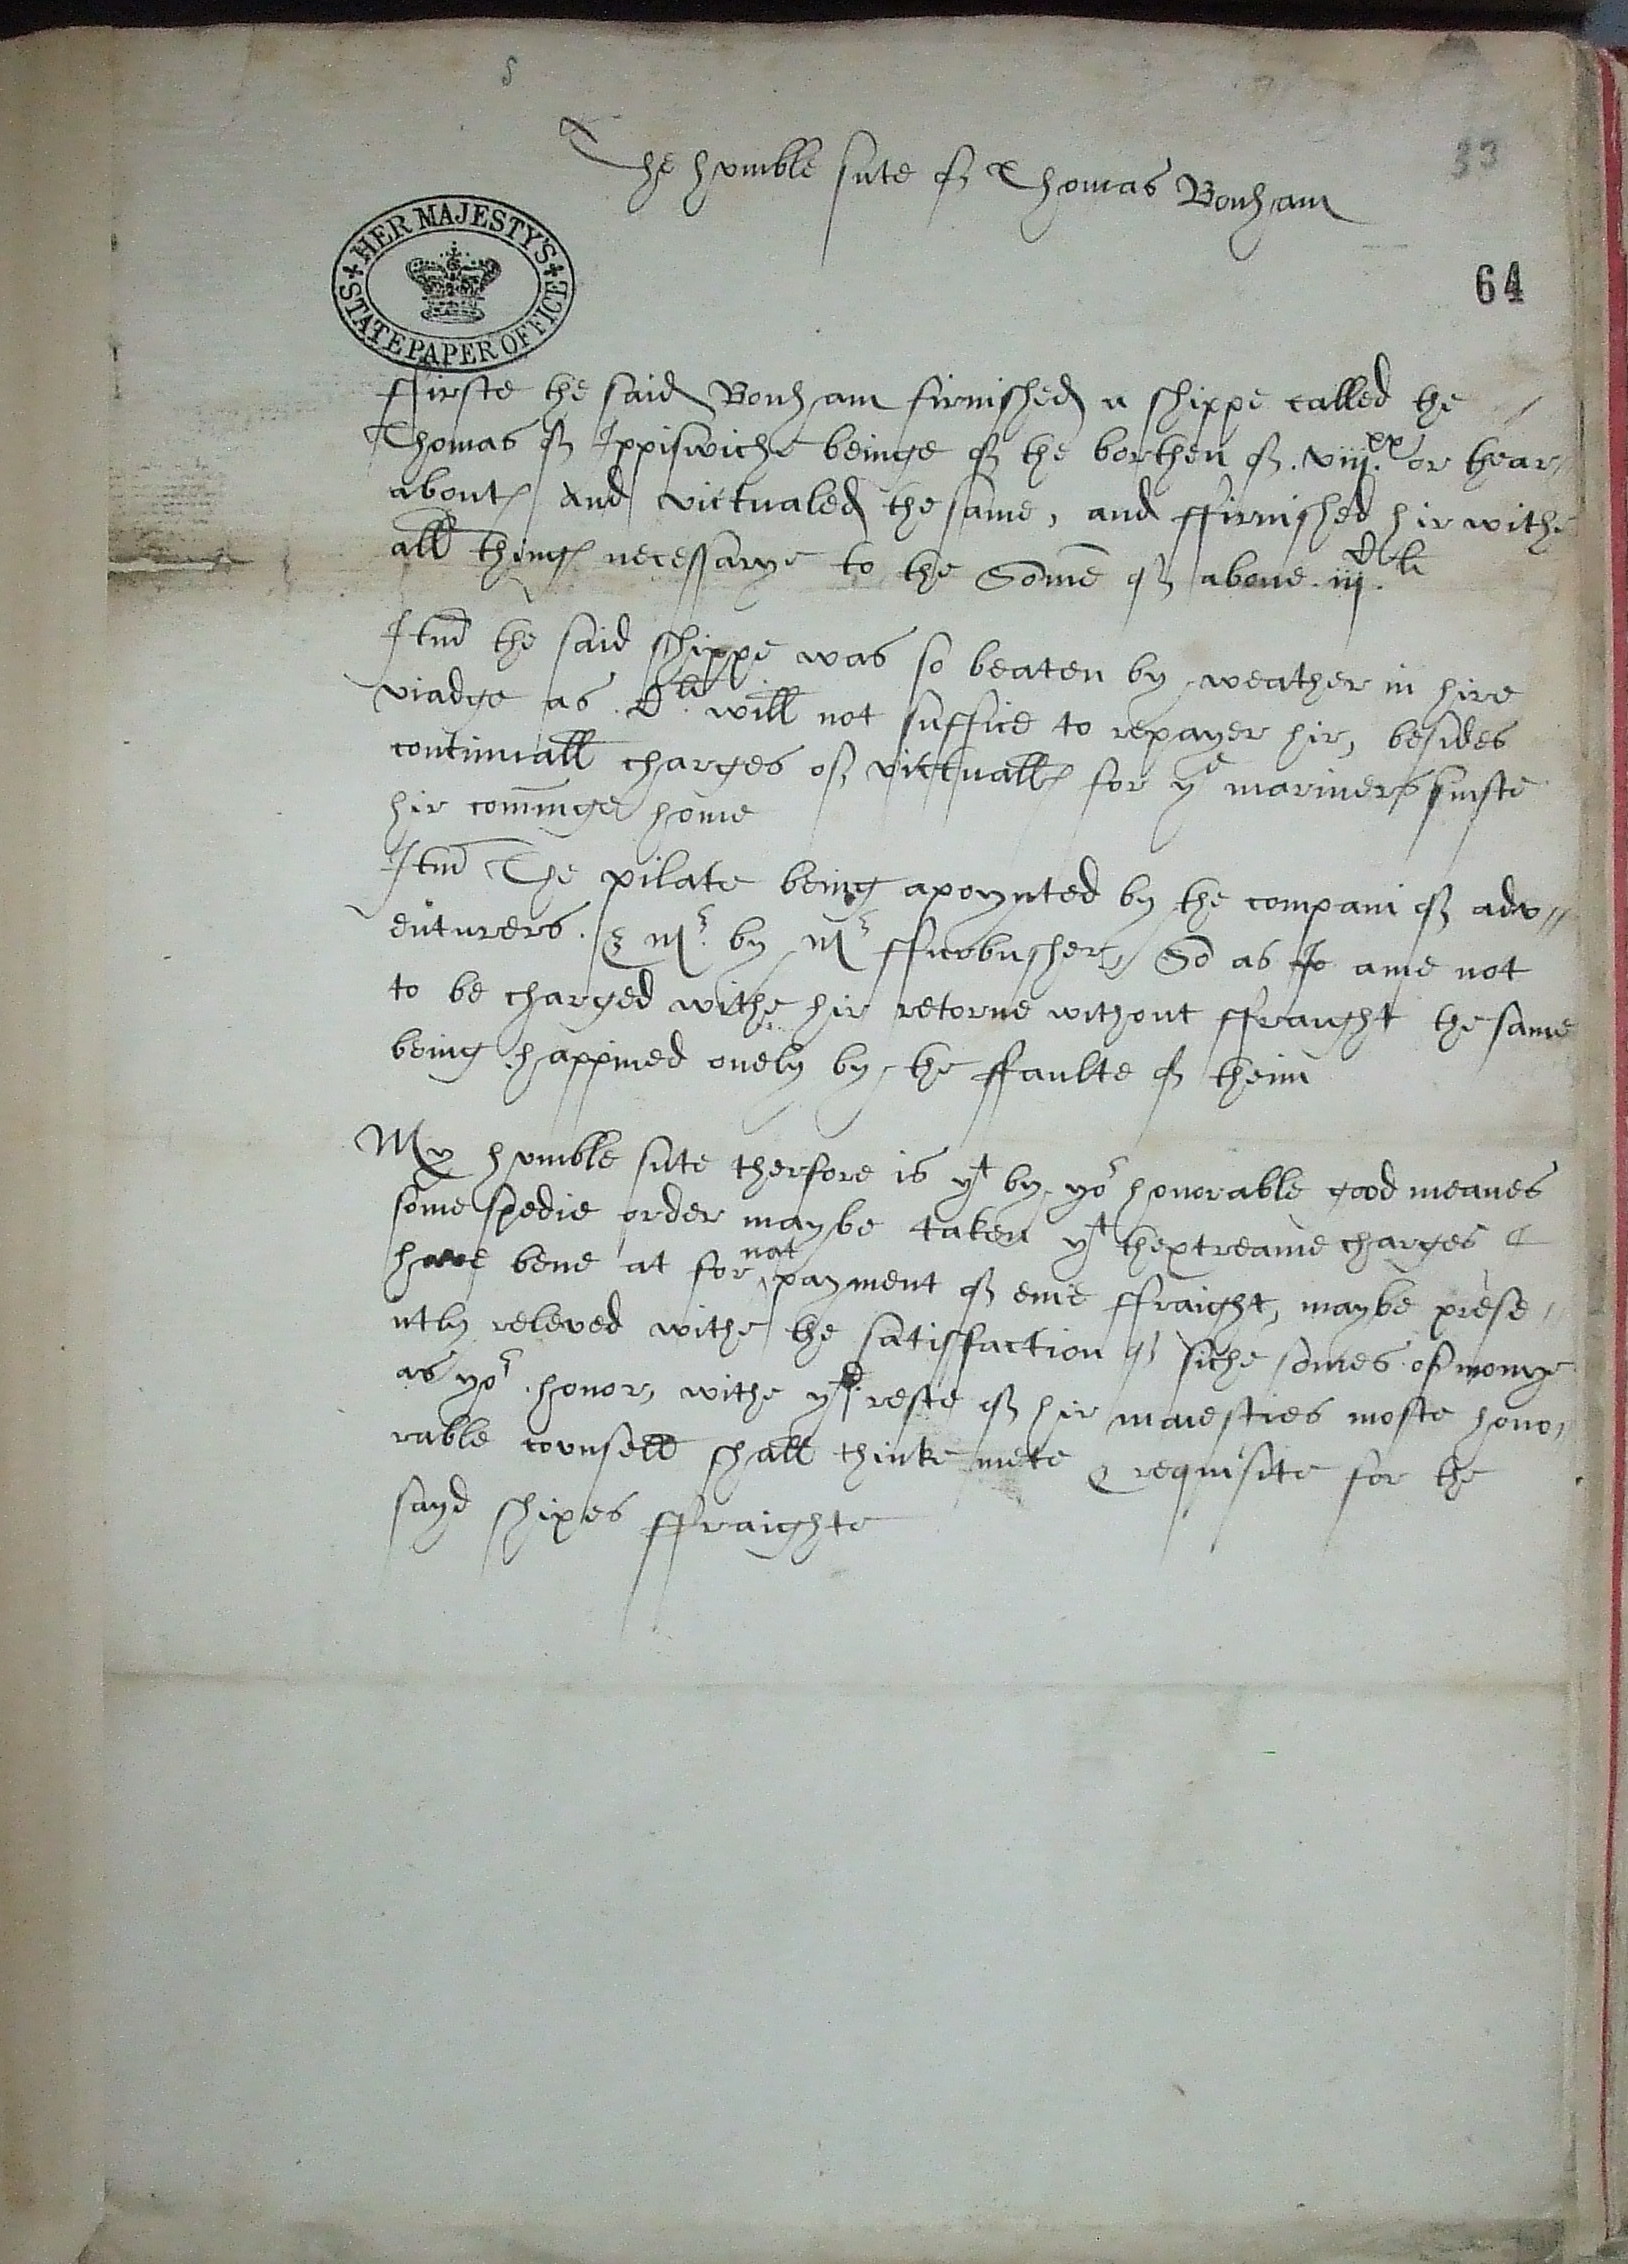 33
The humble sute of Thomas Bonham
HER MAJESTY'S STATE PAPER OFFICE
64
ffirste the said Bonham firnished a shippe called the
Thomas of Ippiswiche beinge of the borthen of .viij.xx or thear//
aboutes And victualed the same, and ffirnished hir withe
all thinges necessarye to the Some of above .iij.C li
Itm the said shippe was so beaten by weather in hire
viadge as .C li. will not suffice to repayer hir, besides
continuall charges of victualles for ye mariners sinste
hir cominge home
Itm The pilate being apoynted by the compani of adv//
enturers. & Mr. by Mr ffurbusher, So as I ame not
to be charged withe hir retorne without ffraight the same
being happined onely by the ffaulte of theim
My humble sute therfore is yt by yor honorable good meanes
some spedie order maybe taken yt thextreame charges I
have bene at for not payment of eme ffraight, maybe prese//
ntly releved withe the satisffaction of siche somes of monye
as yor honor, withe ye reste of hir maiesties moste hono//
rable counsell shall thinke mete & requisite for the
sayd shipes ffraighte